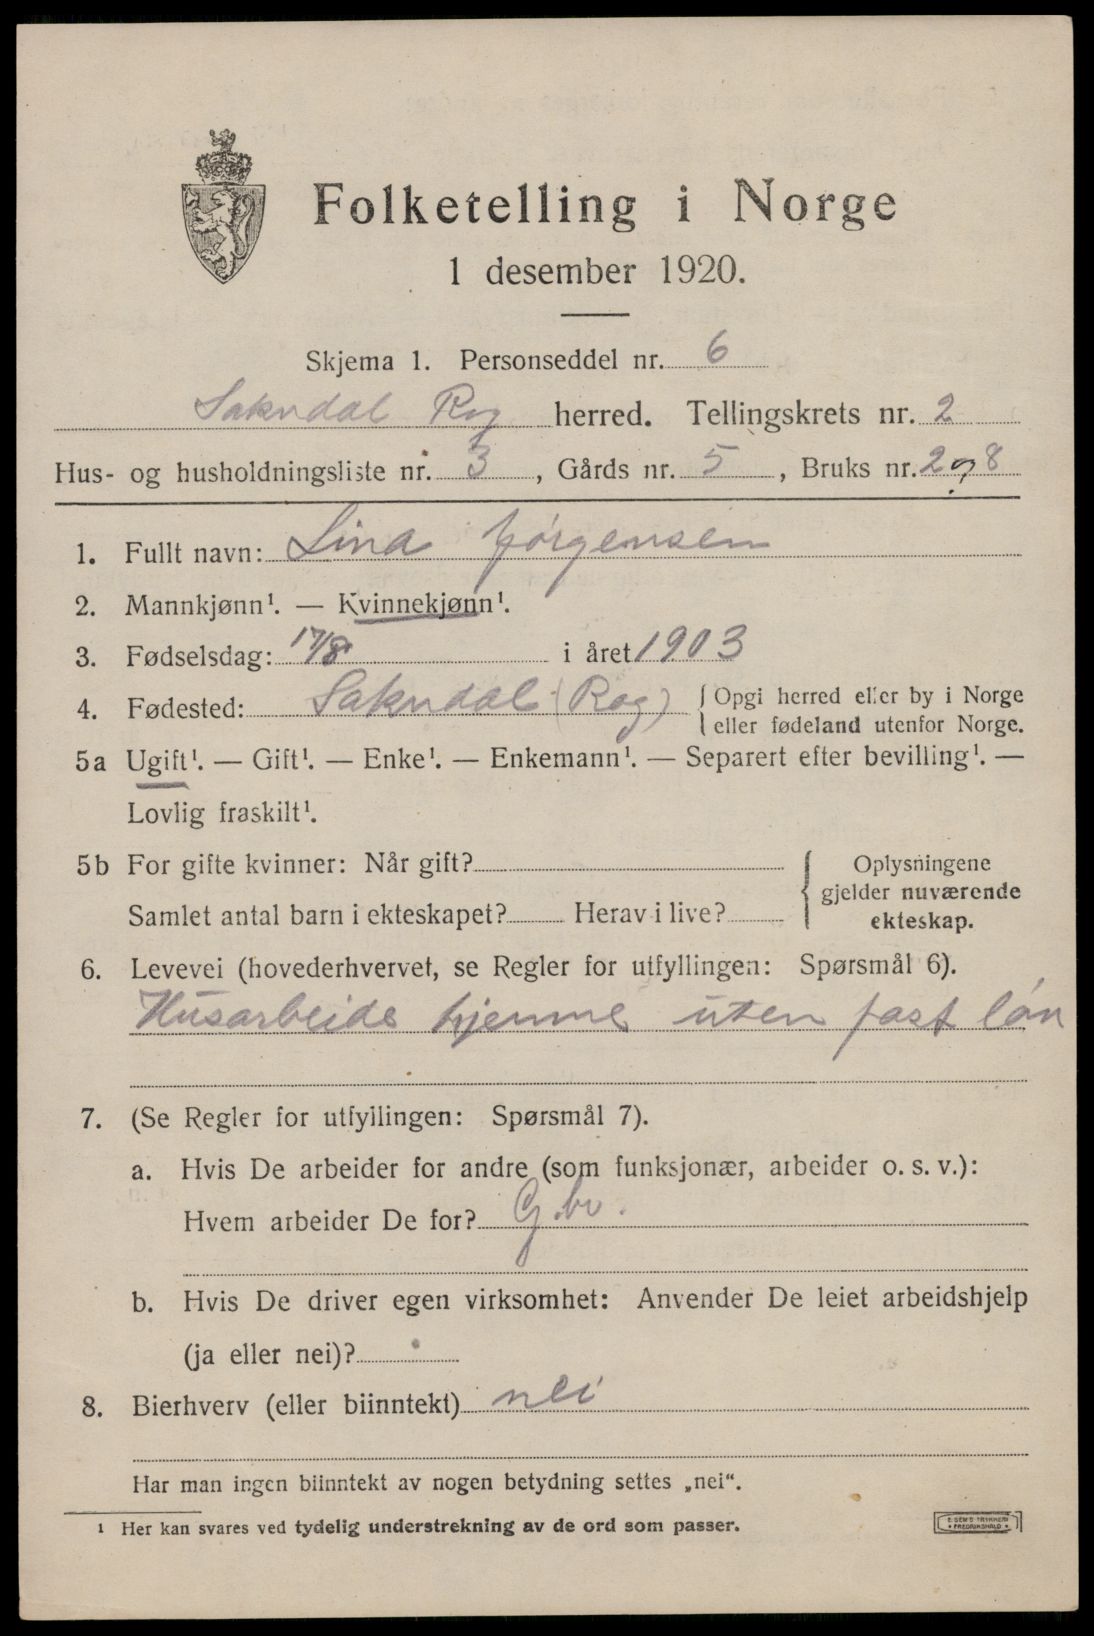 Folketelling i Norge
1 desember 1920.
Skjema 1. Personseddel nr. 6
Sokndal Rog herred. Tellingskrets nr. 2
Hus- og husholdningsliste nr. 3, Gårds nr. 5, Bruks nr. 2 og 8
1. Fullt navn: Lina Jørgensen
2. Mannkjønn¹. — Kvinnekjønn¹.
3. Fødselsdag: 17/8 i året 1903
4. Fødested: Sokndal (Rog) { Opgi herred eller by i Norge
eller fødeland utenfor Norge.
5a Ugift¹. — Gift¹. — Enke¹. — Enkemann¹. — Separert efter bevilling¹. —
Lovlig fraskilt¹.
5b For gifte kvinner: Når gift?
Samlet antal barn i ekteskapet? Herav i live?
{ Oplysningene
gjelder nuværende
ekteskap.
6. Levevei (hovederhvervet, se Regler for utfyllingen: Spørsmål 6).
Husarbeide hjemme uten fast løn
7. (Se Regler for utfyllingen: Spørsmål 7).
a. Hvis De arbeider for andre (som funksjonær, arbeider o. s. v.):
Hvem arbeider De for? G.br.
b. Hvis De driver egen virksomhet: Anvender De leiet arbeidshjelp
(ja eller nei)?
8. Bierhverv (eller biinntekt) nei
Har man ingen biinntekt av nogen betydning settes „nei“.
¹ Her kan svares ved tydelig understrekning av de ord som passer.